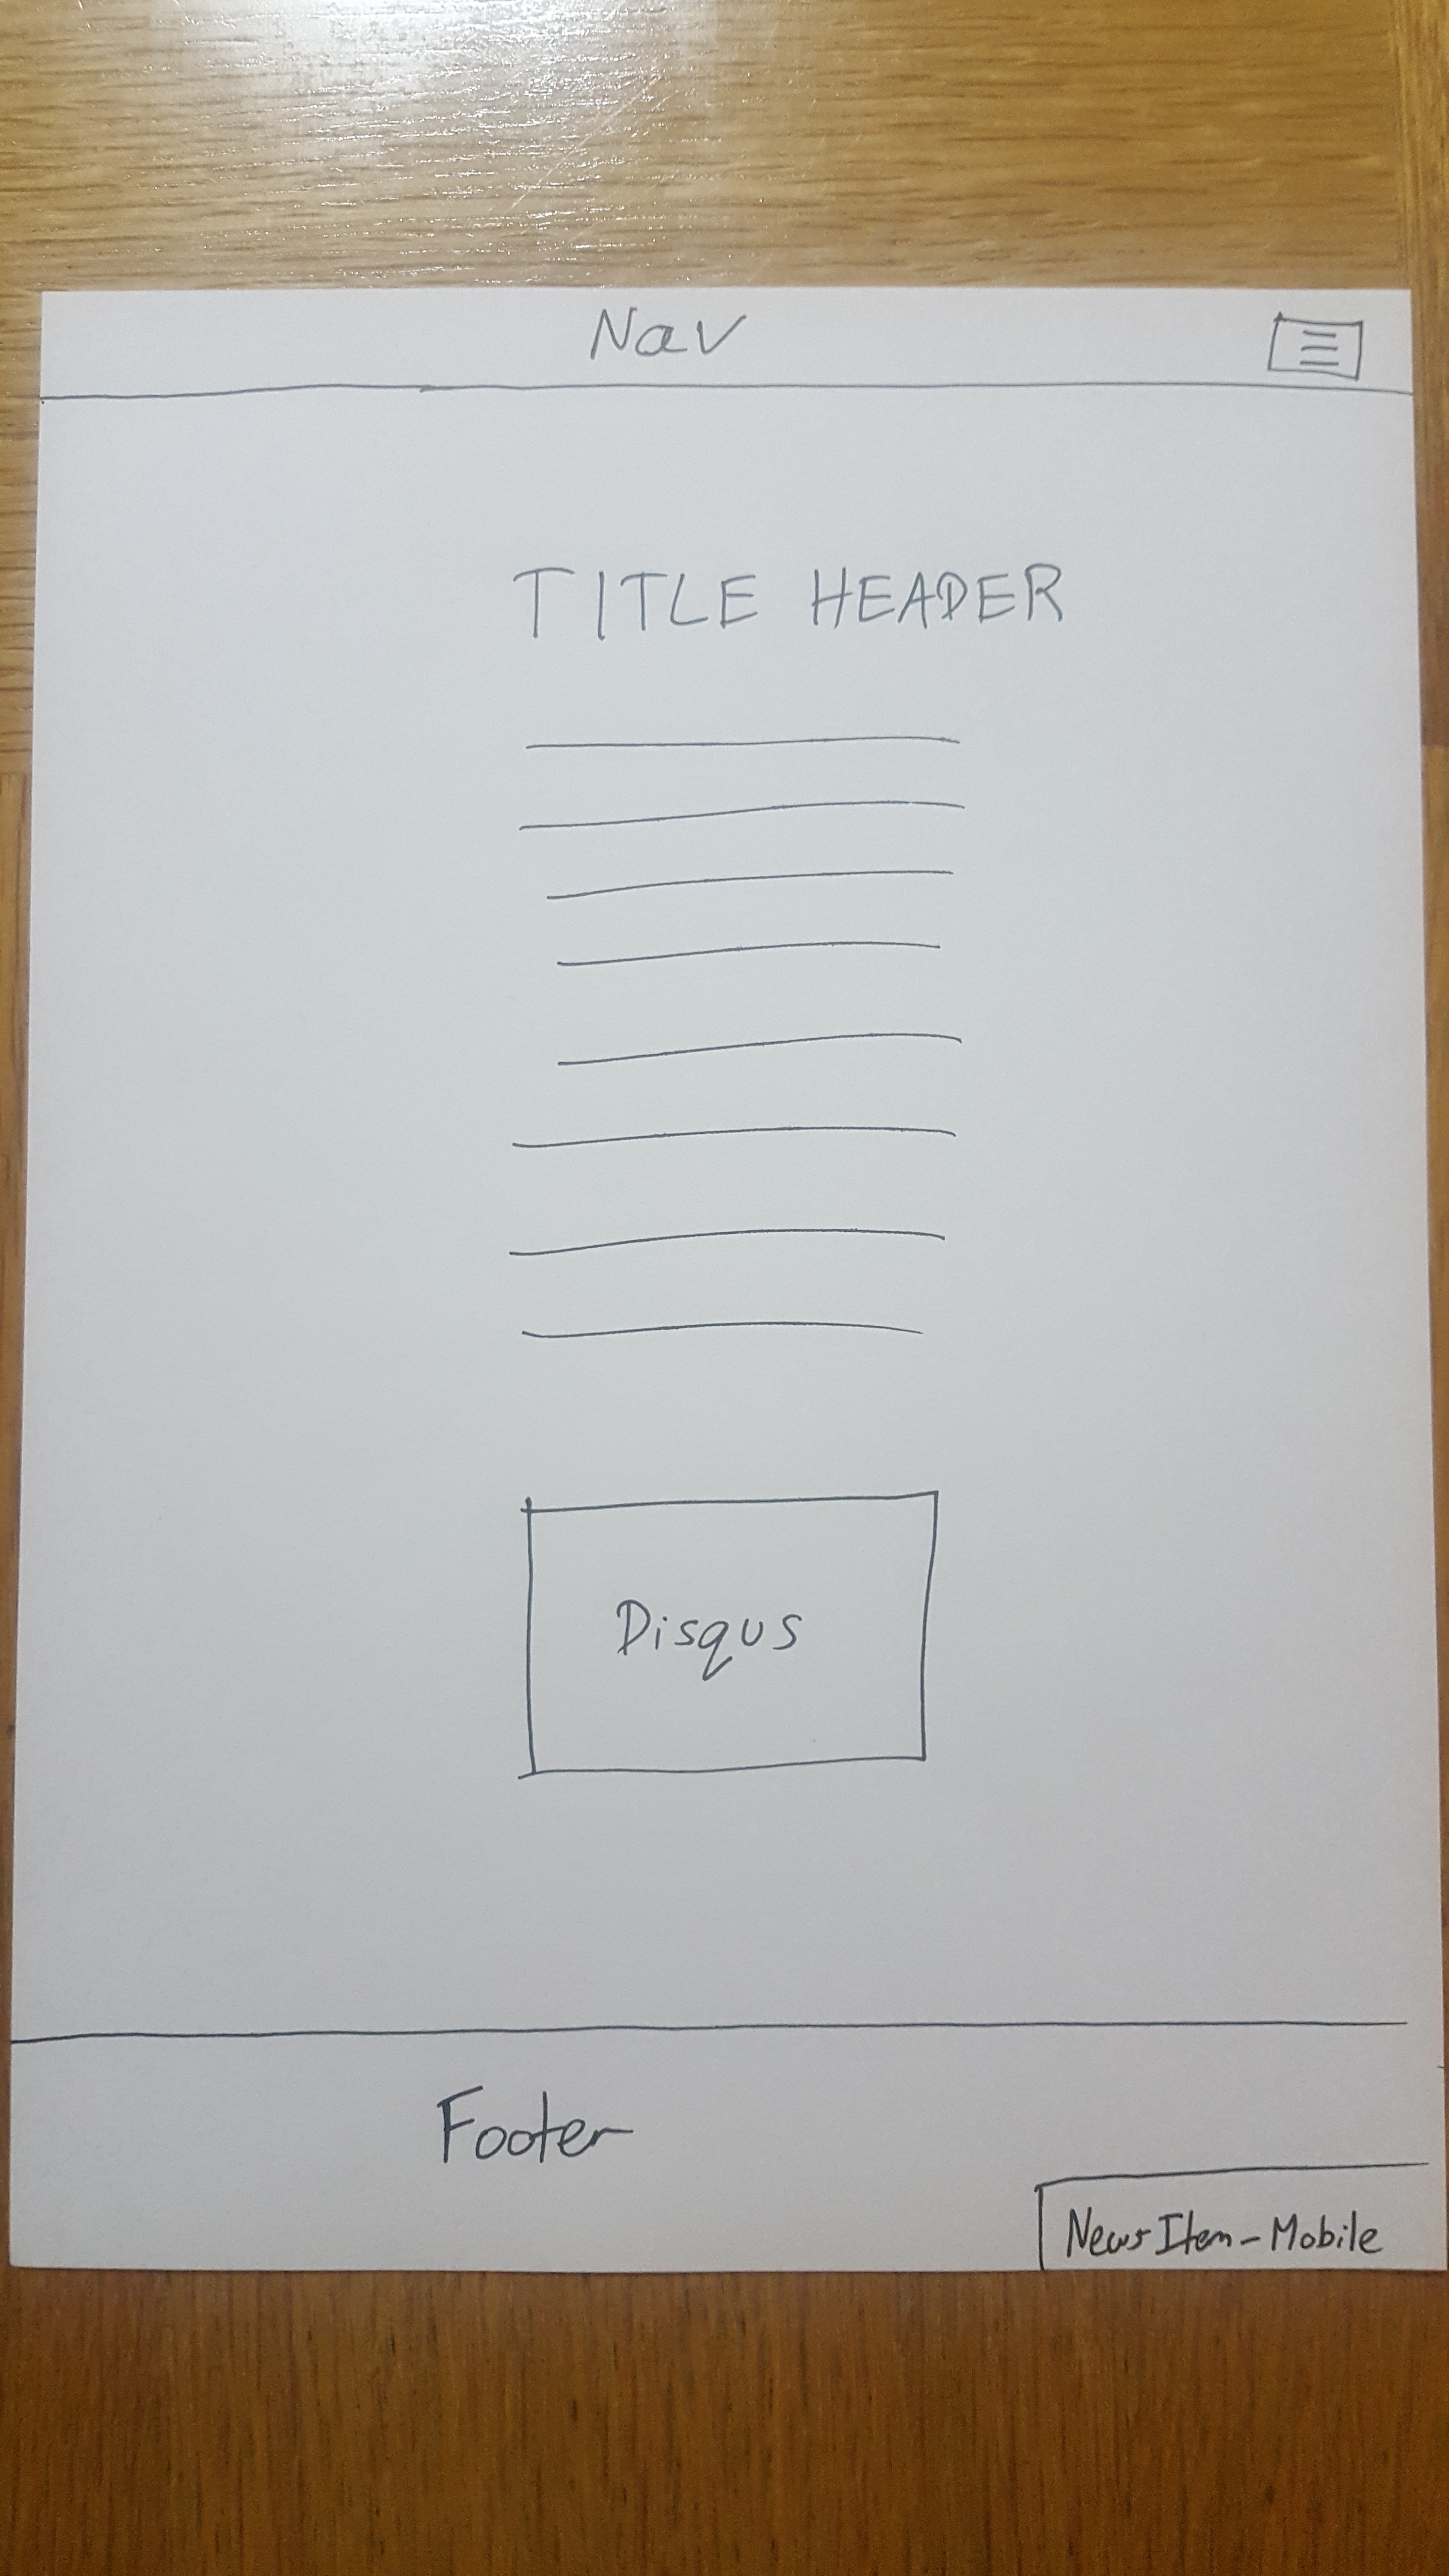 Nav
TITLE HEADER
Disqus
Footer
News Item - Mobile